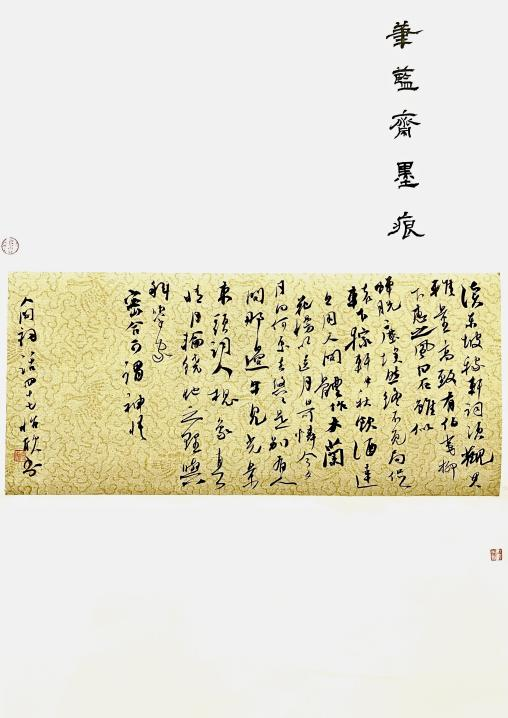 筆藍齋墨痕
讀東坡稼軒詞須觀其
雅量高致有伯夷柳
下惠之風白石雖似
蟬脫塵埃然終不免局促
轅下稼軒中秋飲酒達
旦用人問體作木蘭
花慢以送月可憐今夕
月向何處去悠悠是別有人
間那邊才見光景
東頭詞人想象直
悟月輪繞地之理與
科學家
密合可謂神悟
人間詞話四十七